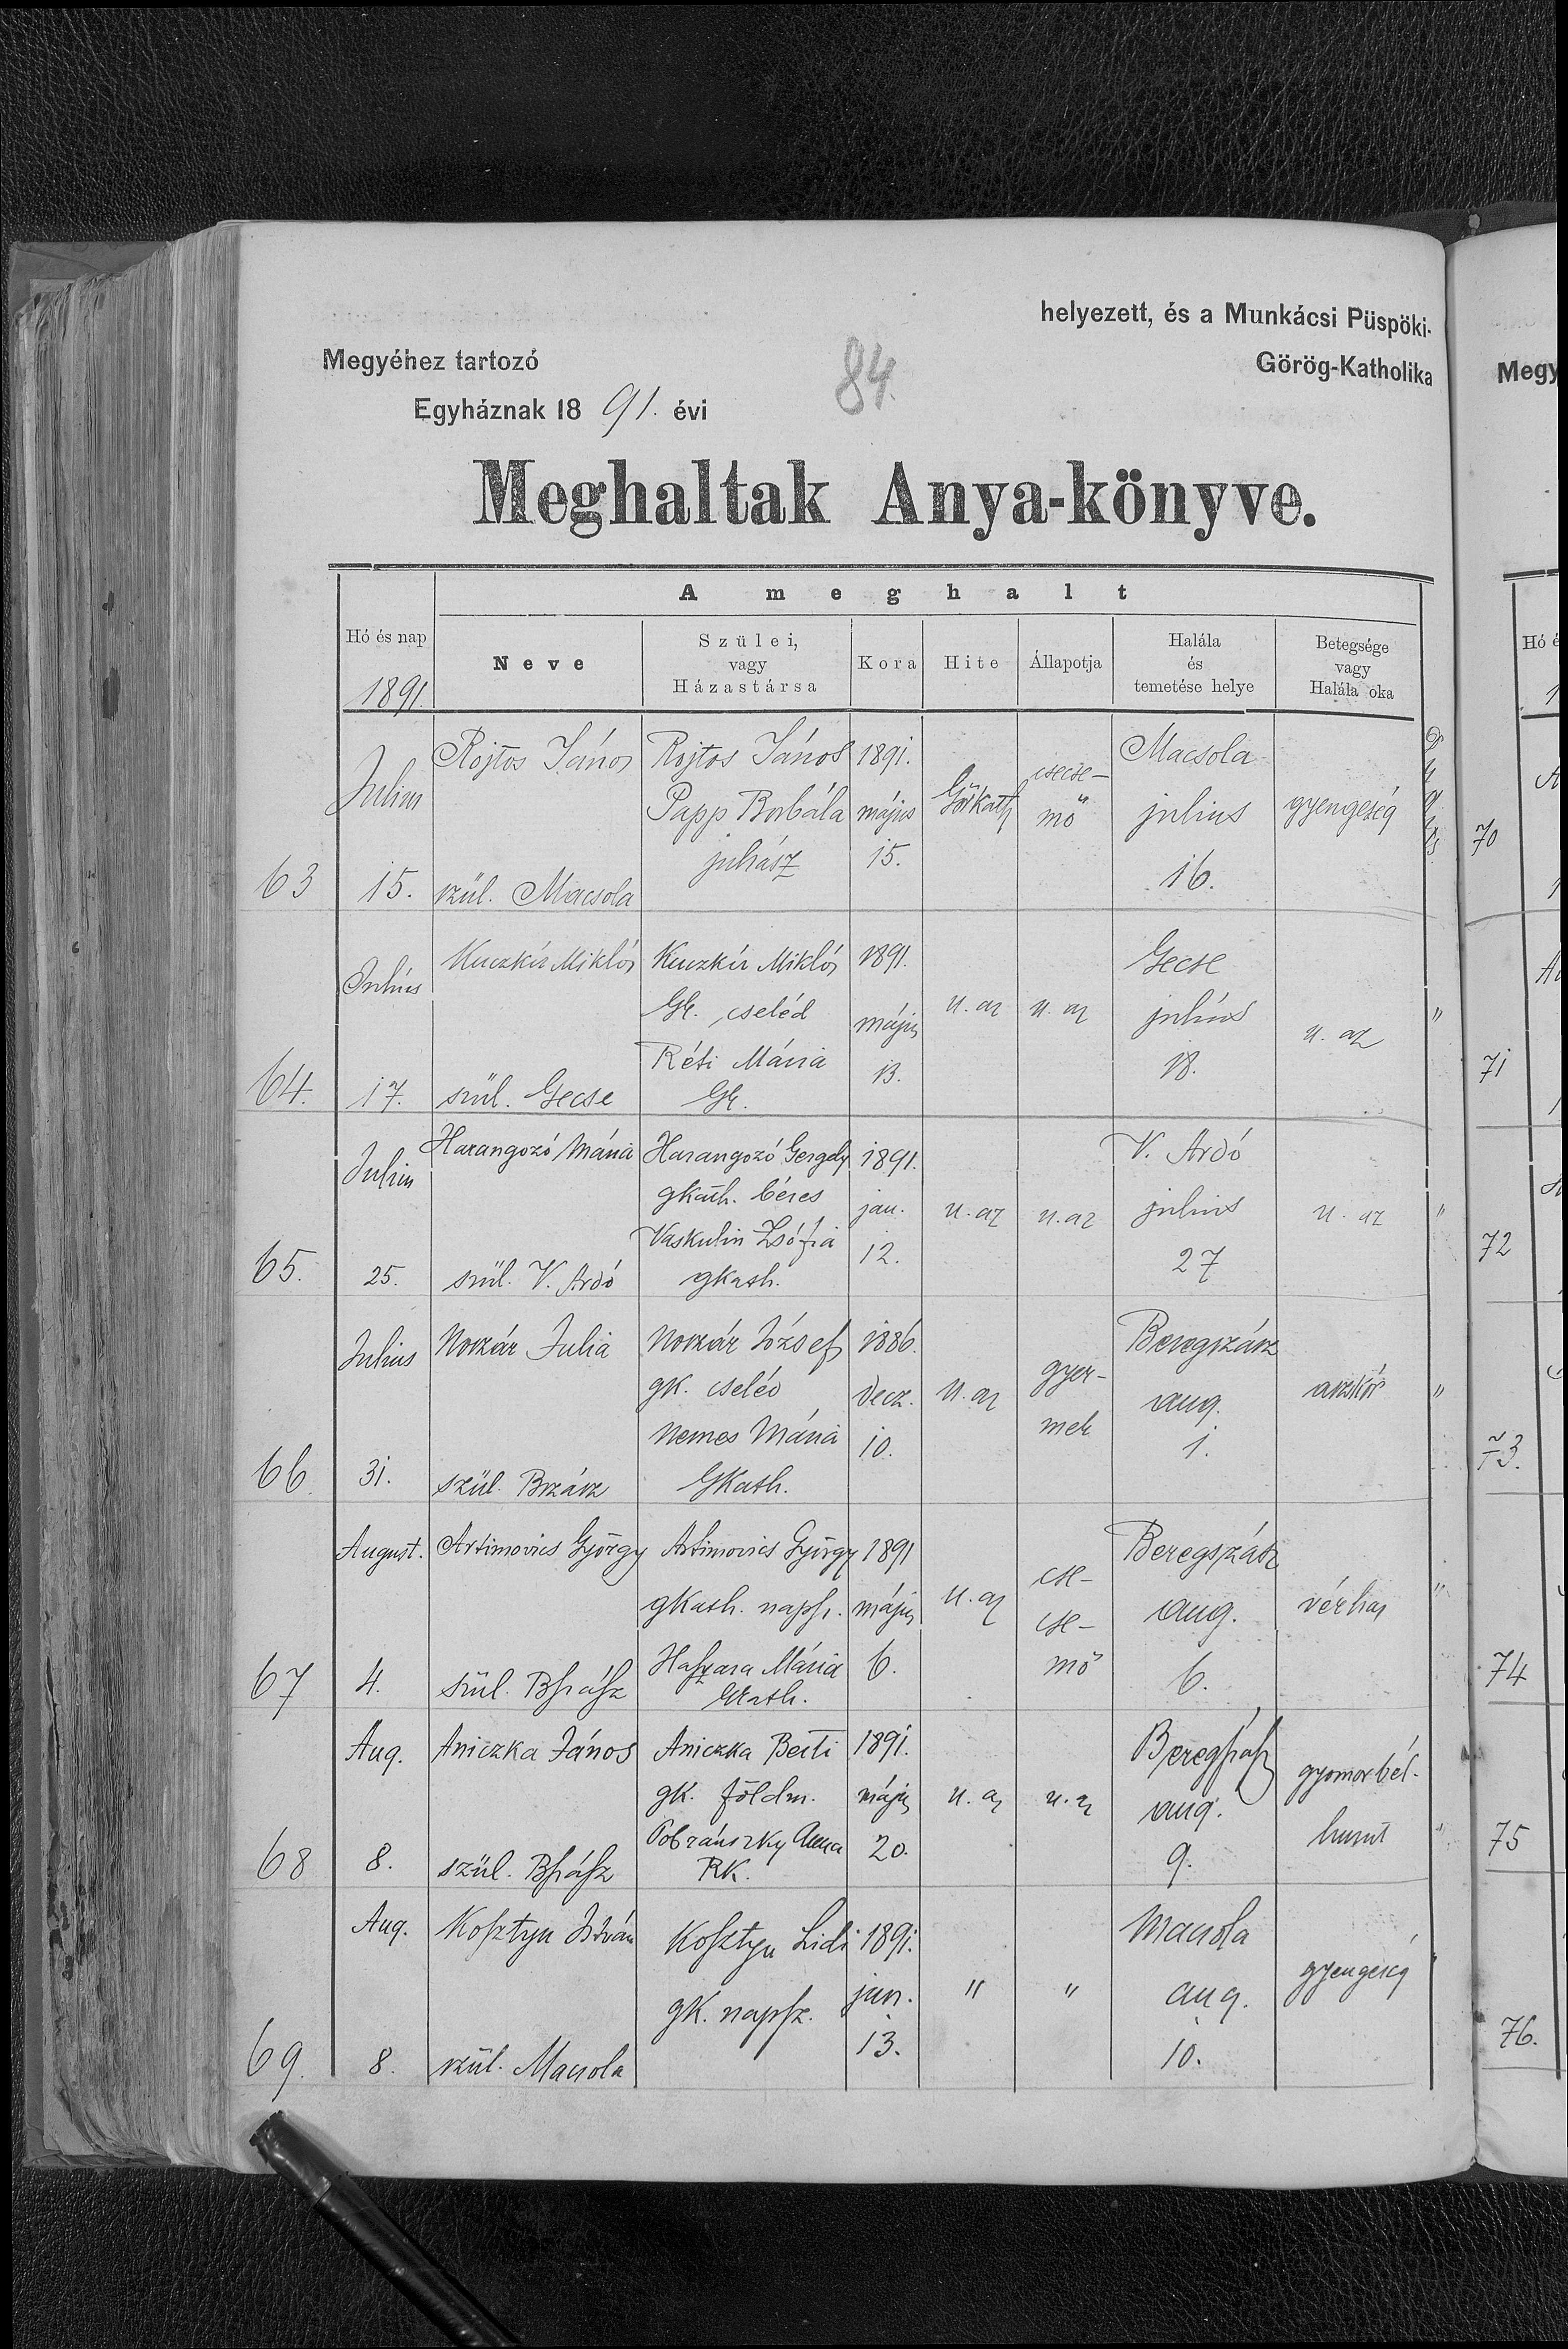 helyezett, és a Munkácsi Püspöki-
Megyéhez tartozó
84.
Görög-Katholika
Egyháznak 1891. évi
Meghaltak Anya-könyve.
A meghalt
Hó és nap
1891.
Neve
Szülei,
vagy
Házastársa
Kora
Hite
Állapotja
Halála
és
temetése helye
Betegsége
vagy
Halála oka
63
Julius
15.
Rojtos János
szül. Macsola
Rojtos János
Papp Borbála
juhász
1891.
május
15.
Görkath
csecse-
mő
Macsola
julius
16.
gyengeség
64.
Julius
17.
Kuczkir Miklós
szül. Gecse
Kuczkir Miklós
Gk. cseléd
Réti Mária
Gk.
1891.
május
13.
u. az
u. az
Gecse
július
18.
u. az
"
65.
Julius
25.
Harangozó Mária
szül. V. Ardó
Harangozó Gergely
gkath. béres
Vaskulin Zsófia
gkath.
1891.
jan.
12.
u. az
u. az
V. Ardó
julius
27
u. az
"
66.
Julius
31.
Noszár Julia
szül. Bszász
Noszár József
gk. cseléd
Nemes Mária
GKath.
1886.
decz.
10.
u. az
gyer-
mek
Beregszász
aug.
1.
aszkór
"
67
August.
4.
Artimovics György
szül. Bszász
Artimovics György
gkath. napsz.
Mária
Gkath.
1891
május
6.
u. az
cse-
cse-
mő
Beregszász
aug.
6.
vérhas
"
68
Aug.
8.
Aniczka János
szül. Bszász
Aniczka Berti
gk. földm.
Anna
RK.
1891.
május
20.
u. az
u. az
Beregszász
aug.
9.
gyomorbél-
hurut
"
69.
Aug.
8.
Kosztyu István
szül. Macsola
Kosztyu Lidi
gk. napsz.
1891.
jan.
13.
"
"
Macsola
aug.
10.
gyengeség
"
Megy
Hó é
70
71
72
73.
74
75
76.